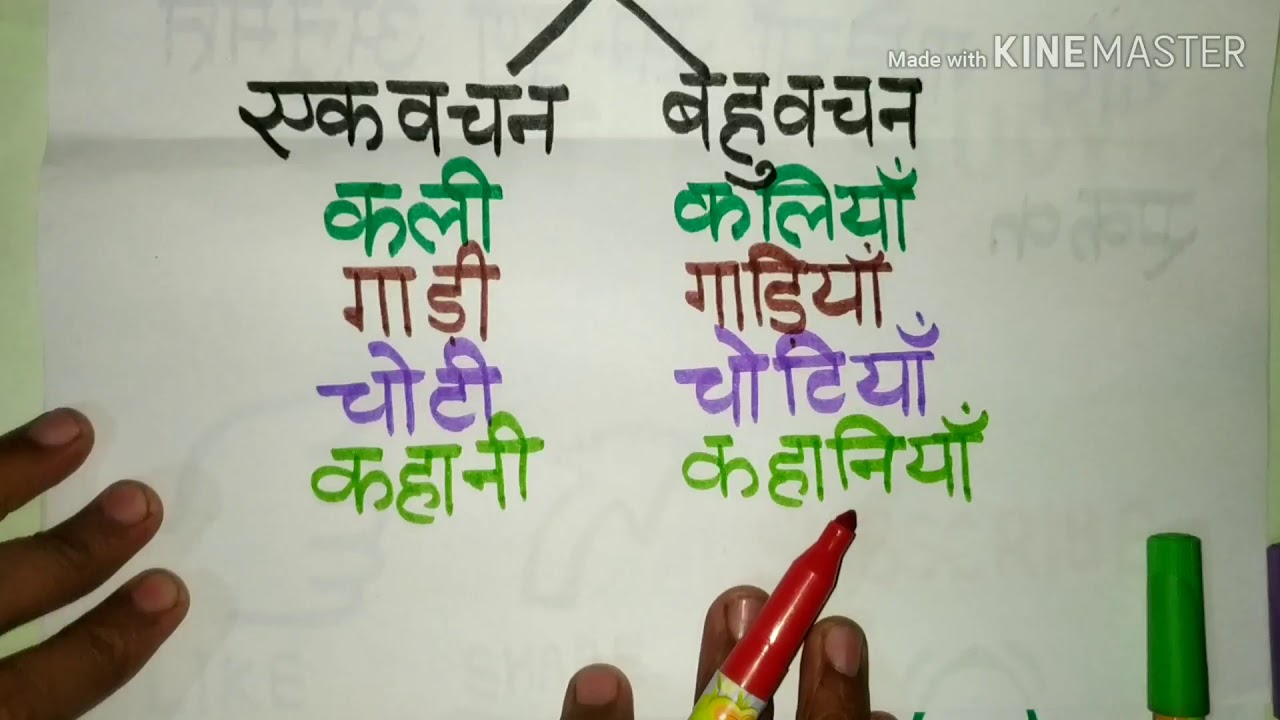 Made with KINEMASTER
एकवचन बहुवचन
कली कलियाँ
गाड़ी गाड़ियाँ
चोटी चोटियाँ
कहानी कहानियाँ